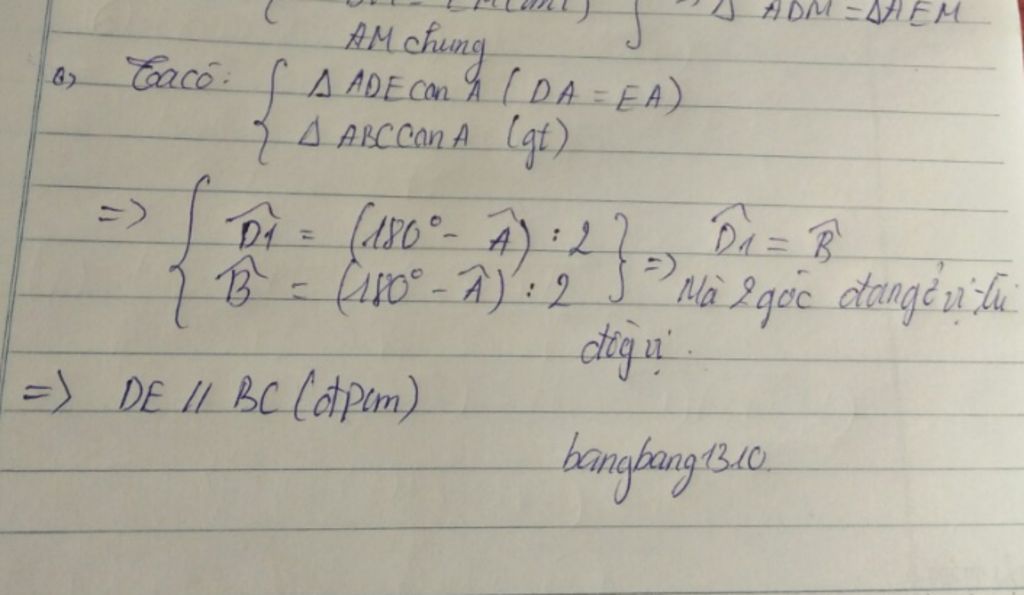 => Δ ADM = ΔAEM
AM chung
Ta có: { Δ ADE cân A (DA = EA)
Δ ABC Cân A (gt)
=> { D̂1 = (180° - Â) : 2 } => D̂1 = B̂
B̂ = (180° - Â) : 2
Mà 2 góc đang ở vị trí
đồg vị.
=> DE // BC (đpcm)
bangbang1310.